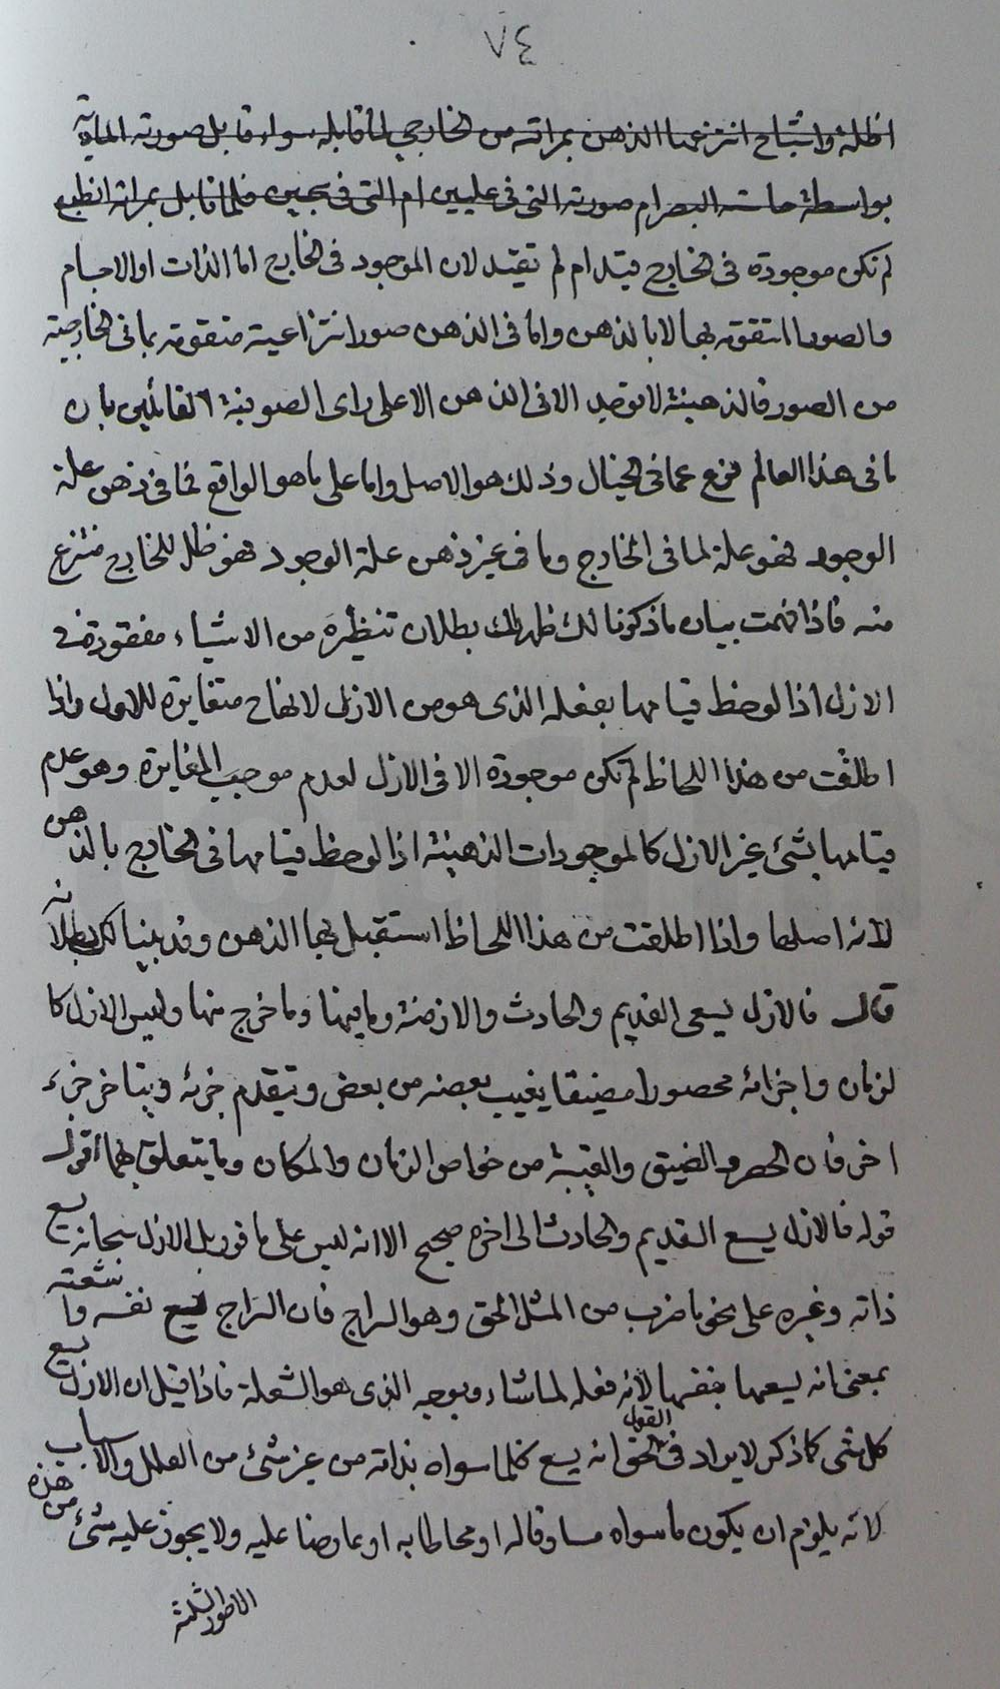 ٧٤
اظلة واشباح انتزعها الذهن بمراته من الخارجي لما قابله سواء قابل صورته المادية
بواسطة حاسة البصر ام صورته التي في عليين ام التي في سجين فلما قابل بمراته انطبع
لم تكن موجودة في الخارج قيد ام لم تقيد لان الموجود في الخارج اما الذات او الاجسام
والصور المتقومة بها لا بالذهن واما في الذهن صور انتزاعية متقومة بما في الخارجية
من الصور فالذهنية لا توجد الا في الذهن الا على راى الصوفية القائلين بان
ما في هذا العالم فرع عما في الخيال وذلك هو الاصل واما على ما هو الواقع فما في ذهن علة
الوجود فهو علة لما في الخارج وما في غير ذهن علة الوجود فهو ظل للخارج منتزع
منه فاذا فهمت بيان ما ذكرنا لك ظهر لك بطلان تنظيره من الاشياء مفقودة في
الازل اذا لوحظ قيامها بفعله الذى هو من الازل لانها ح متغايرة للاول واذا
اطلقت من هذا اللحاظ لم تكن موجودة الا في الازل لعدم موجب المغايرة وهو عدم
قيامها بشئ غير الازل كالموجودات الذهنية اذا لوحظ قيامها في الخارج بالذهن
لانه اصلها واذا اطلقت من هذا اللحاظ استقبل بها الذهن وقد بينا لك بطلانه
قال فالازل يسع القديم والحادث والازمنة وما فيها وما خرج منها وليس الازل كا
لزمان واجزائه محصورا مضيقا يغيب بعضه من بعض ويتقدم جزئه ويتاخر جزء
اخر فان الحصر والضيق والغيبة من خواص الزمان والمكان وما يتعلق بهما اقول
قوله فالازل يسع القديم والحادث الى اخره صحيح الا انه ليس على ما قوربل الازل سبحانه يسع
ذاته وغيره على نحو ما ضرب من المثل الحق وهو السراج فان السراج يسع نفسه واشعته
بمعنى انه يسعها بنفسها لانه فعله لما شاء وبوجه الذى هو الشعلة فاذا قيل ان الازل يسع
كل شئ كما ذكر لا يراد في القول الحق انه يسع كلما سواه بذاته من غير شئ من العلل والاسباب
لانه يلزم ان يكون ما سواه مساوقا له او محاطا به او عارضا عليه ولا يجوز عليه شئ من هذه
الامور الثلثة